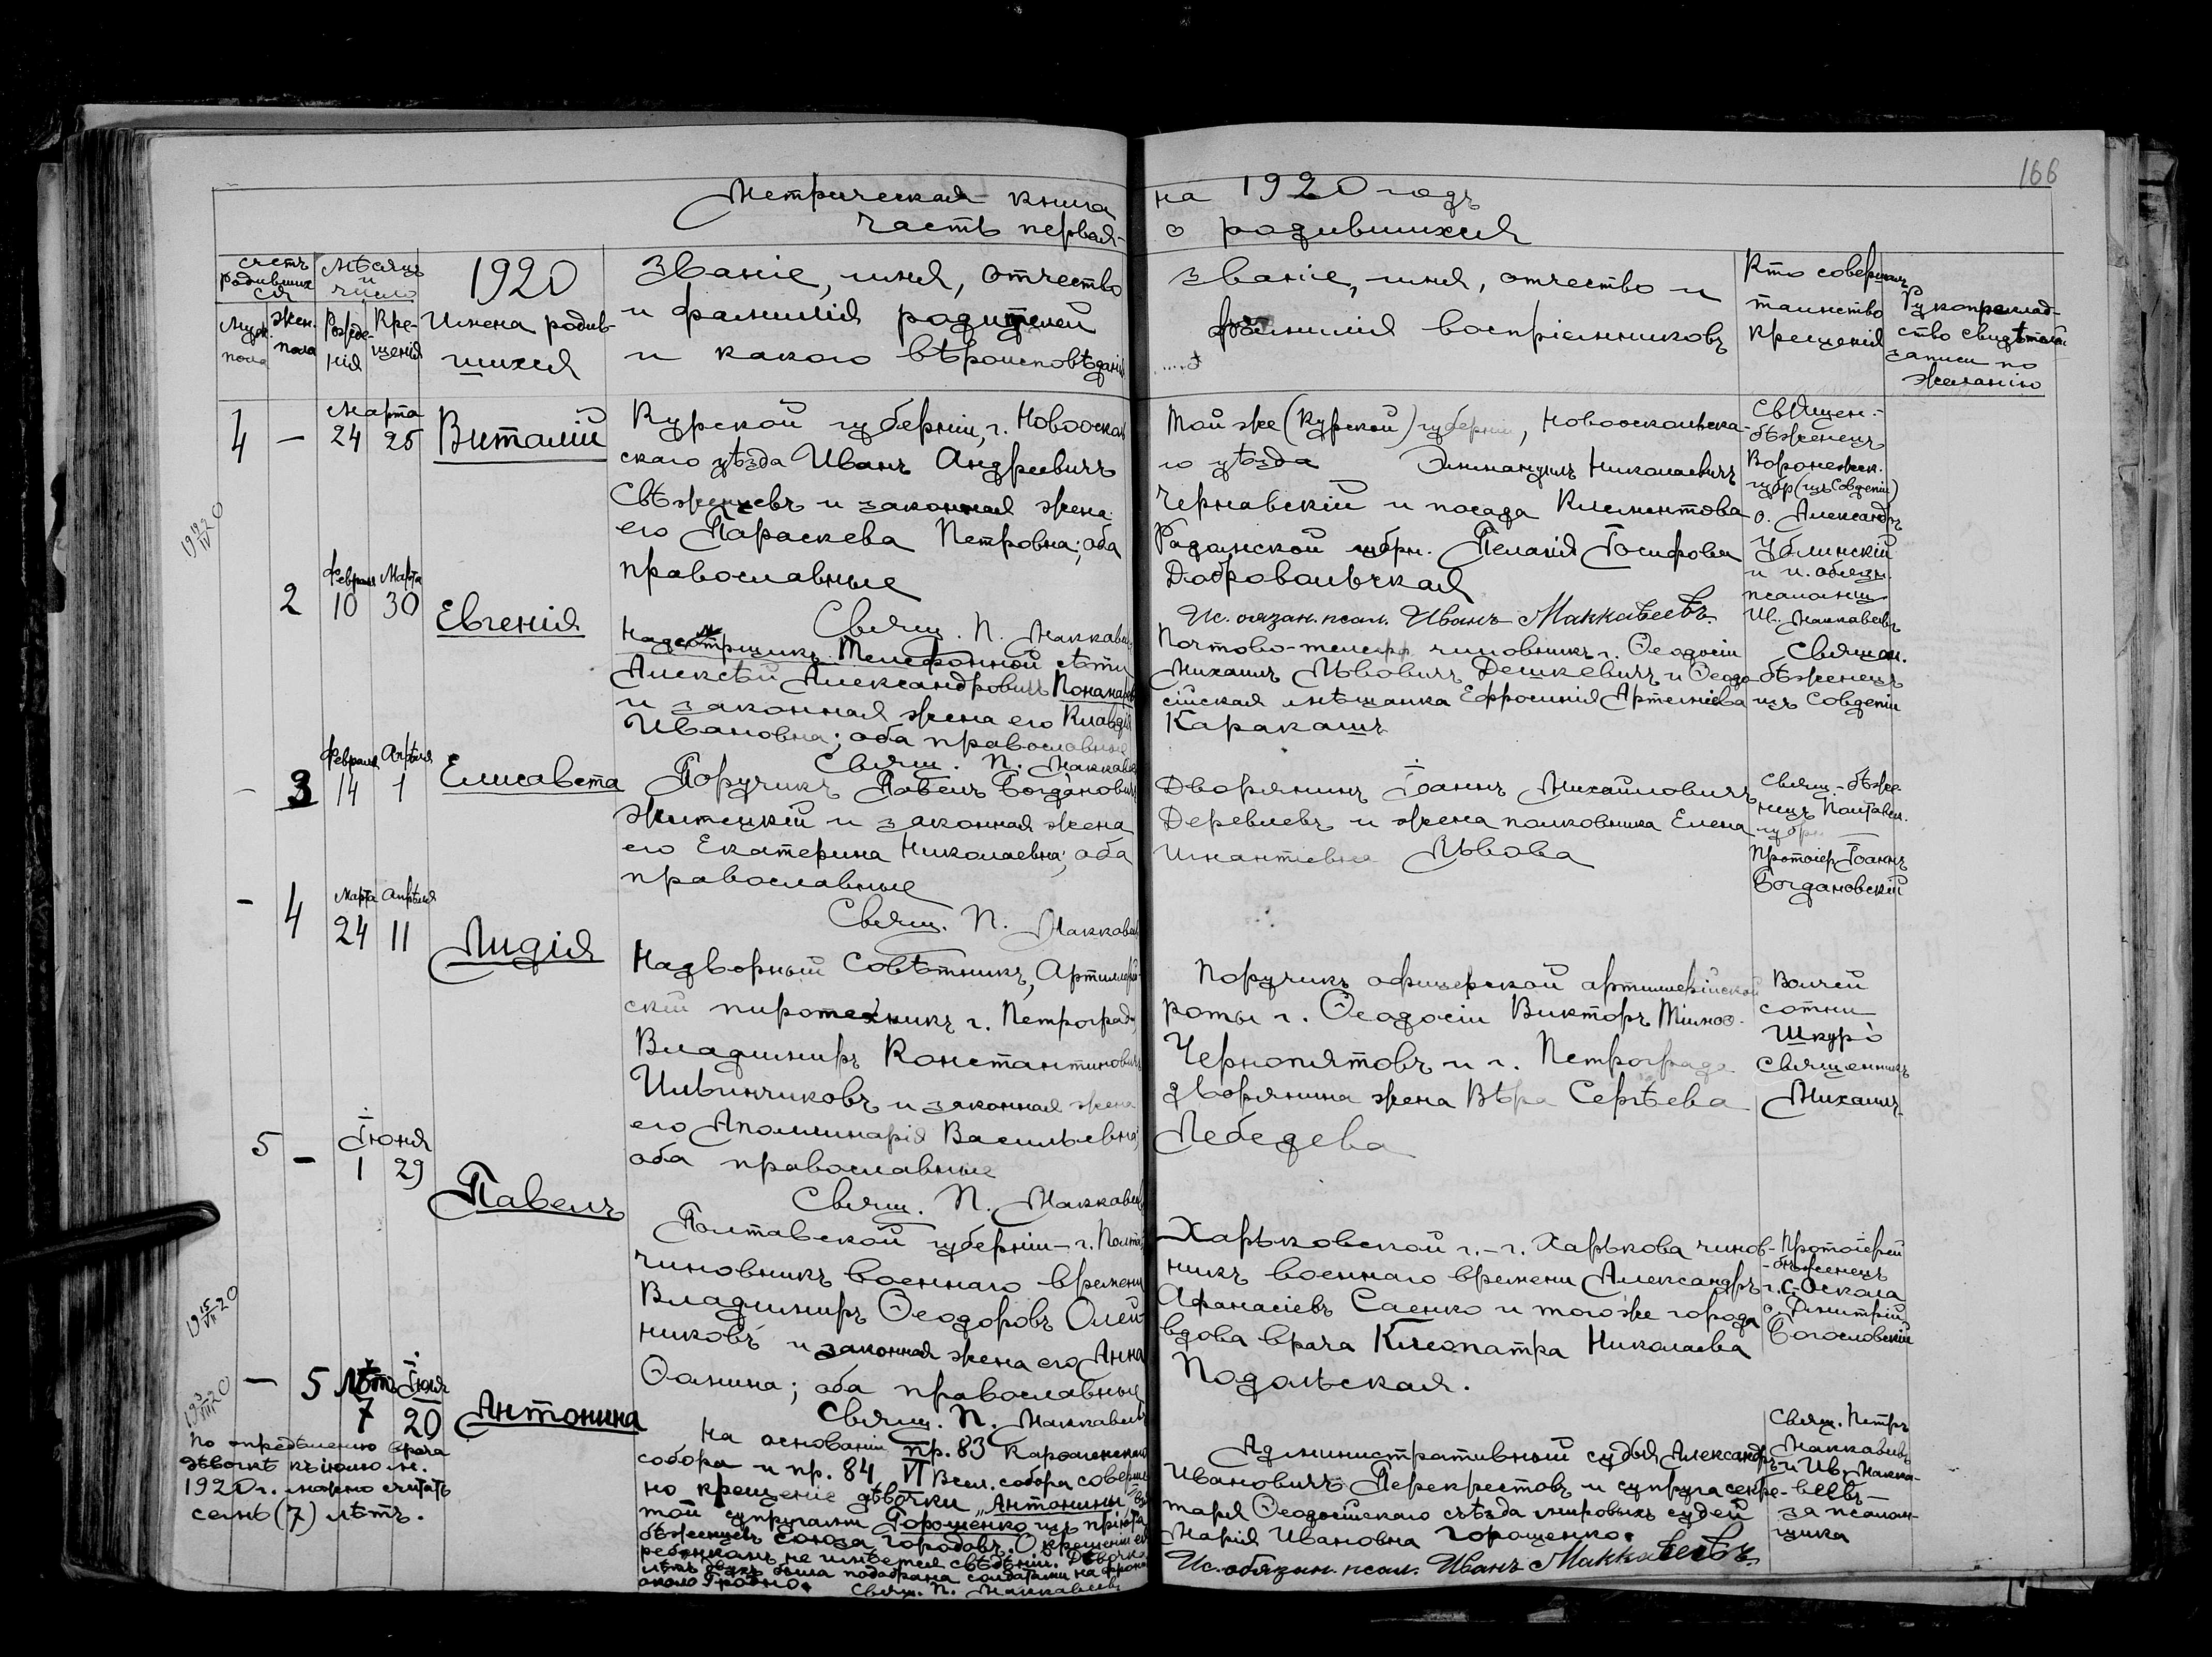 166
Метрическая книга на 1920 годъ
часть первая о родившихся
счетъ родивших ся
Мѣсяцъ и число
1920
Званіе, имя, отчество
и фамилія родителей
и какого вѣроисповѣданія
Муж. пола
Жен. пола
Рожде- нія
Кре- щенія
Имена родив-
шихся
Званіе, имя, отчество и
фамилія воспріемниковъ
Кто совершалъ
таинство
крещенія
Рукоприклад-
ство свидѣтелей
записи по
желанію
4 —
Марта
24 25
Виталій
Курской губерніи, г. Новооскол
скаго уѣзда Иванъ Андреевичъ
Свѣженцевъ и законная жена
его Параскева Петровна; оба
православные
Свящ. П. Маккавеев
Той же (Курской) губерніи, Новооскольска-
го уѣзда Эммануилъ Николаевичъ
Чернавскій и посада Климентова
Радомской губрн. Пелагія Іосифовна
Добровольская
Ис. обязан. псал. Иванъ Маккавеевъ
Священ.-
бѣженецъ
Воронежск.
губр (изъ Совдепіи)
о. Александръ
Ублинскій
и и. обязн.
псаломщ.
Ив. Маккавеевъ
2
Февраля Марта
10 30
Евгенія
Надсмотрщикъ Телефонной сѣти
Алексѣй Александровичъ Понамарев
и законная жена его Клавдія
Ивановна; оба православные
Свящ. П. Маккавеев
Почтово-телегр. чиновникъ г. Ѳеодосіи
Михаилъ Львовичъ Дешкевичъ и Ѳеодо-
сійская мѣщанка Ефросинія Артеміева
Каракашъ
Священ.
бѣженецъ
изъ Совдепіи
— 3
Февраля Апрѣля
14 1
Елисавета
Поручикъ Павелъ Богдановичъ
Житецкій и законная жена
его Екатерина Николаевна; оба
православные
Свящ. П. Маккавеев
Дворянинъ Іоаннъ Михайловичъ
Деревлевъ и жена полковника Елена
Игнатіевна Львова
Свящ.-бѣже-
нецъ Полтавск.
губрн
Протоіер. Іоаннъ
Богдановскій
— 4
Марта Апрѣля
24 11
Лидія
Надворный Совѣтникъ, Артиллерій-
скій пиротехникъ г. Петрограда,
Владимиръ Константиновичъ
Ильинчиковъ и законная жена
его Аполлинарія Васильевна;
оба православные
Свящ. П. Маккавеев
Поручикъ офицерской артиллерійской
роты г. Ѳеодосіи Викторъ
Чернопятовъ и г. Петрограда
дворянина жена Вѣра Сергѣева
Лебедева
Волчей
сотни
Шкуро
священникъ
Михаилъ
5 —
Іюня
1 29
Павелъ
Полтавской губерніи — г. Полтавы
чиновникъ военнаго времени
Владимиръ Ѳеодоровъ Олей
никовъ и законная жена его Анна
Ѳомина; оба православные
Свящ. П. Маккавеевъ
Харьковской г. — г. Харькова чинов-
никъ военнаго времени Александръ
Афанасіевъ Саенко и того же города
вдова врача Клеопатра Николаева
Подольская.
Протоіерей
-бѣженецъ
г. С. Оскола
о. Димитрій
Богословскій
— 5
Лѣтъ Іюля
7 20
Антонина
По опредѣленію врача
дѣвочкѣ къ іюлю м.
1920 г. можно считать
семь (7) лѣтъ.
На основаніи пр. 83 Карѳагенскаго
собора и пр. 84 VI Всел. собора соверше
но крещеніе дѣвочки „Антонины", взя
той супругами Горошенко изъ пріюта
бѣженцевъ Союза Городовъ. О крещеніи ея
ребенкомъ не имѣется свѣдѣній. Дѣвочка
лѣтъ двухъ была подобрана солдатами на фронтѣ
около Гродно. Свящ. П. Маккавеевъ
Административный судья Александръ
Ивановичъ Перекрестовъ и супруга секре-
таря Ѳеодосійскаго съѣзда мировыхъ судей
Марія Ивановна Горощенко.
Ис. обязан. псал. Иванъ Маккавеевъ
Свящ. Петръ
Маккавеевъ
и Ив. Макка-
веевъ
за псалом-
щика